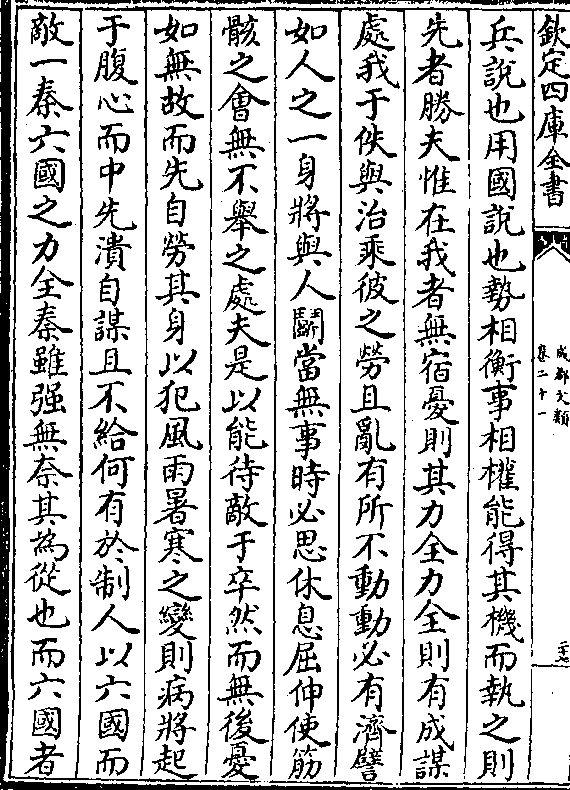 欽定四庫全書
成都文類
卷二十一
兵說也用國說也勢相衡事相權能得其機而執之則
先者勝夫惟在我者無宿憂則其力全力全則有成謀
處我于佚與治乘彼之勞且亂有所不動動必有濟譬
如人之一身將與人鬬當無事時必思休息屈伸使筋
骸之會無不舉之處夫是以能待敵于卒然而無後憂
如無故而先自勞其身以犯風雨暑寒之變則病將起
于腹心而中先潰自謀且不給何有於制人以六國而
敵一秦六國之力全秦雖强無奈其為從也而六國者